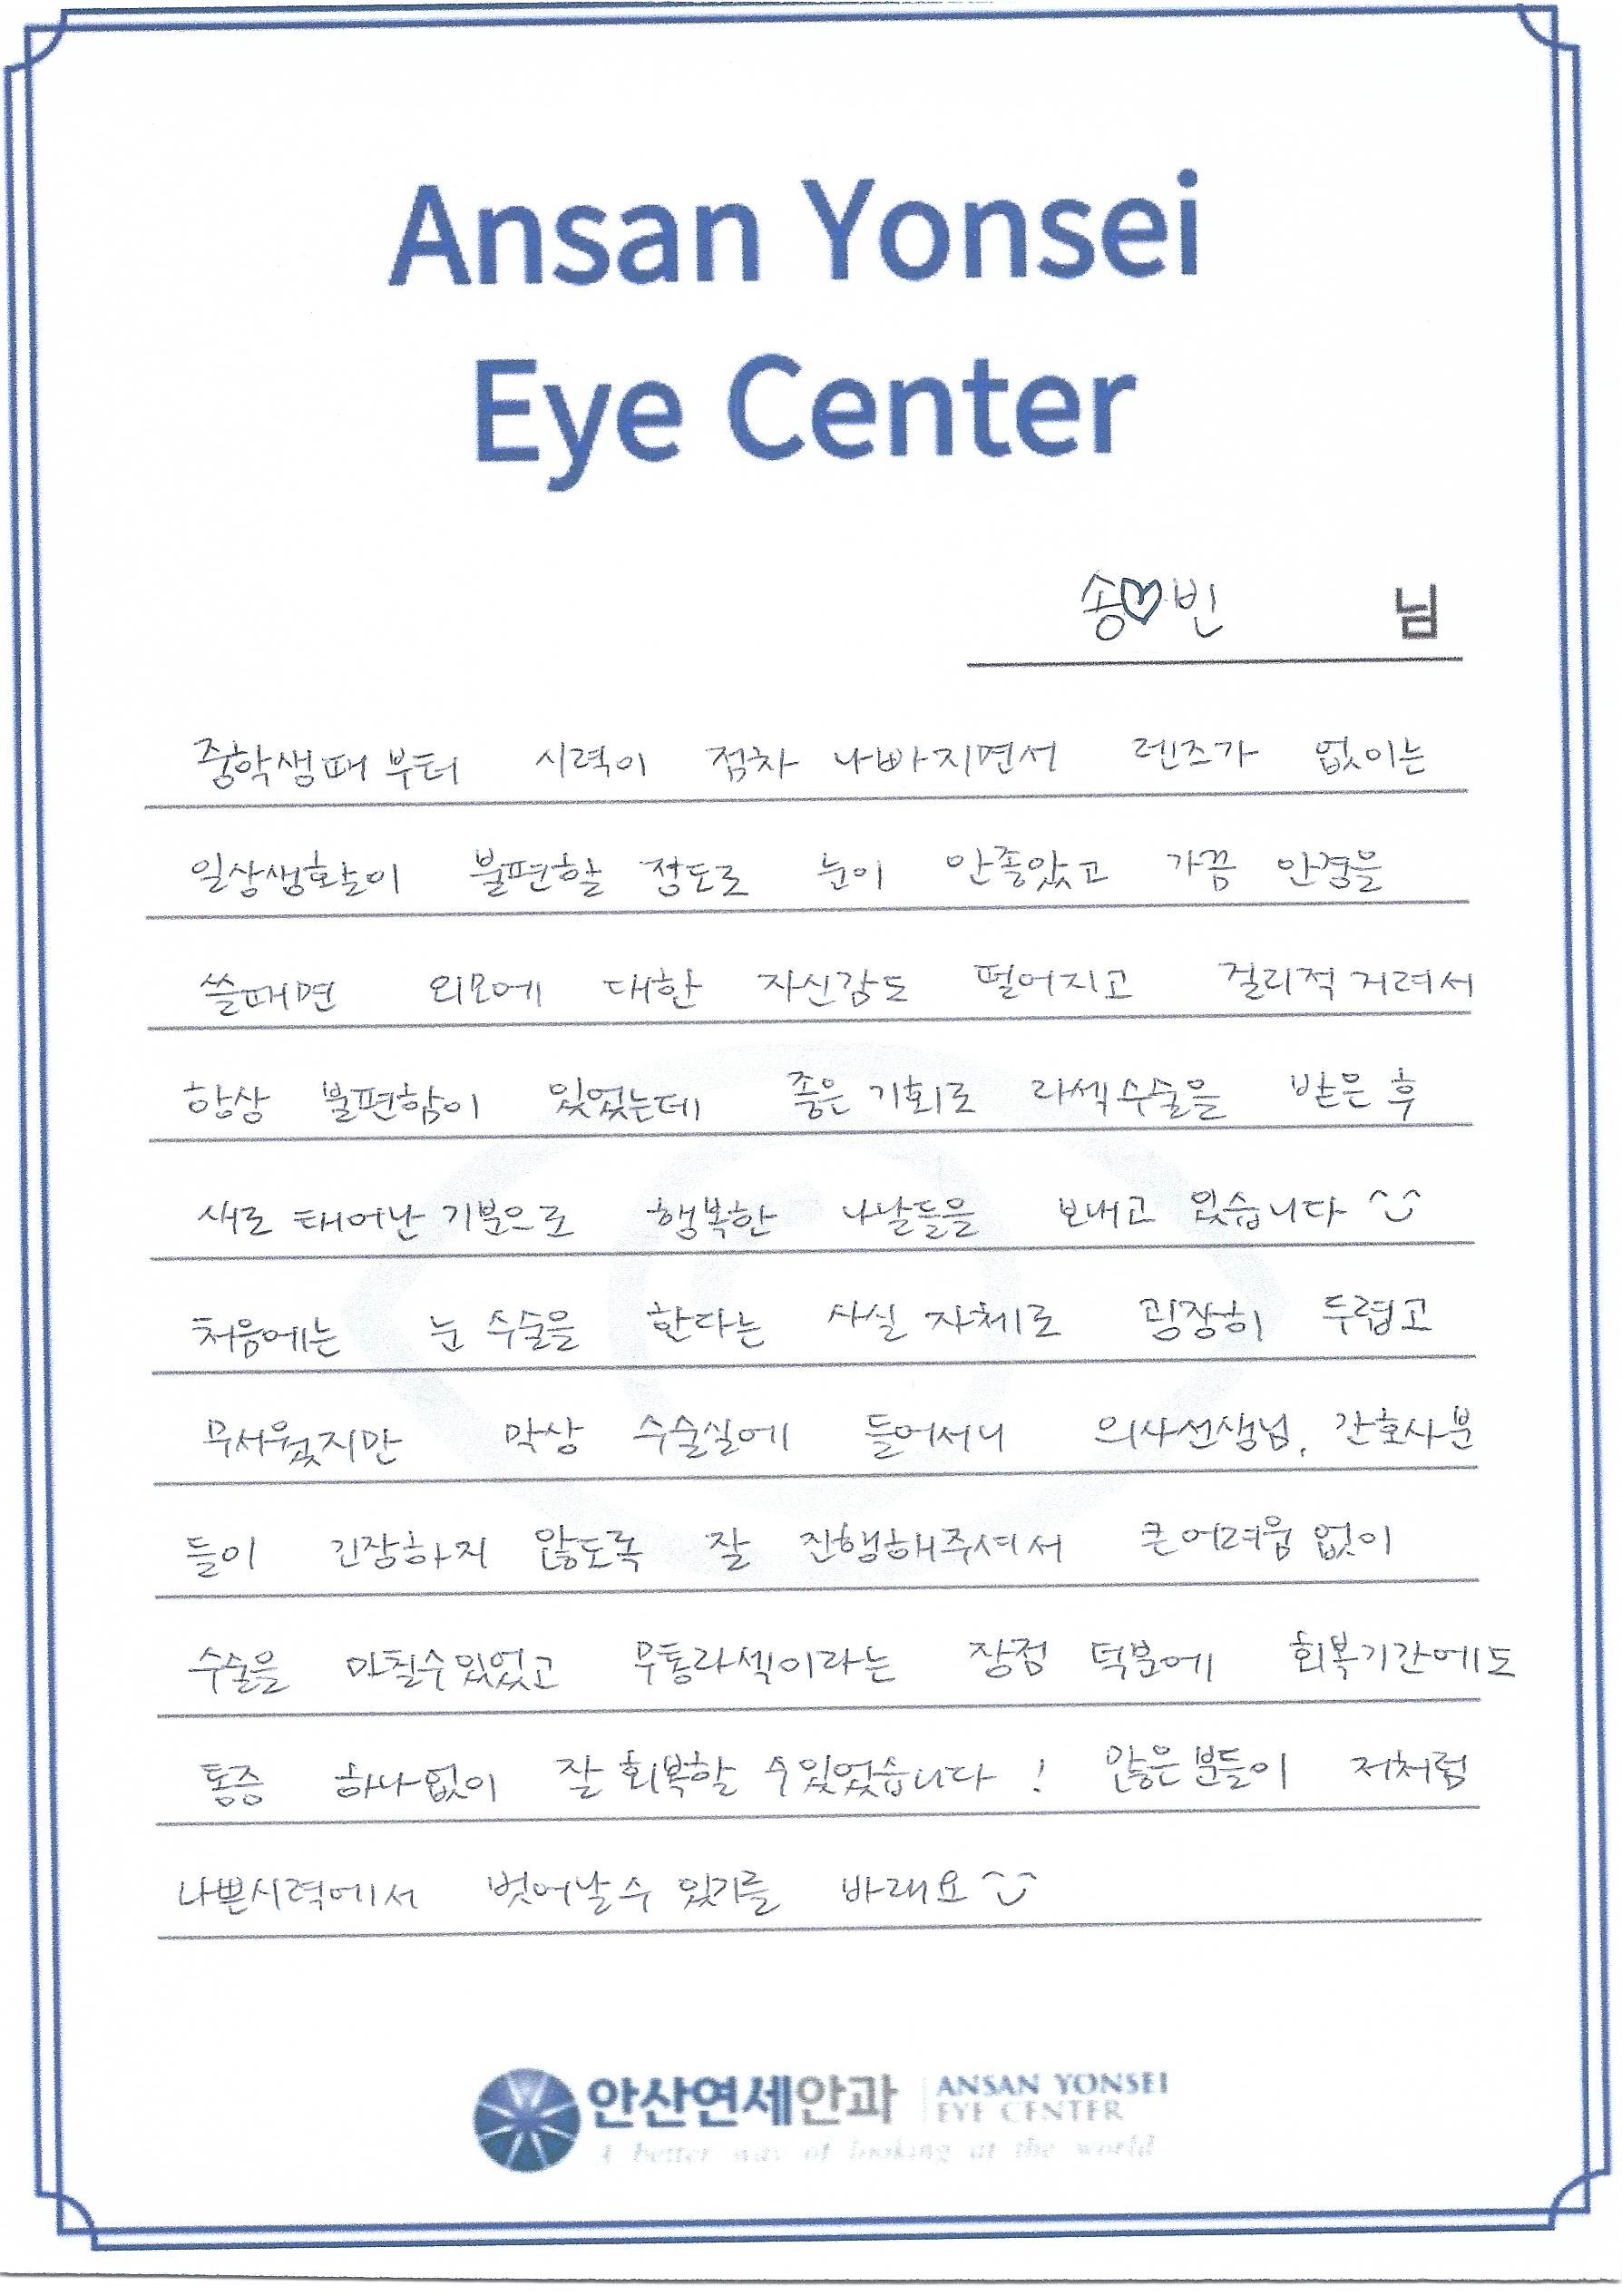 Ansan Yonsei
Eye Center
송♡빈 님
중학생때부터 시력이 점차 나빠지면서 렌즈가 없이는
일상생활이 불편할 정도로 눈이 안좋았고 가끔 안경을
쓸때면 외모에 대한 자신감도 떨어지고 걸리적거려서
항상 불편함이 있었는데 좋은 기회로 라섹수술을 받은 후
새로 태어난 기분으로 행복한 나날들을 보내고 있습니다 ^^
처음에는 눈 수술을 한다는 사실 자체로 굉장히 두렵고
무서웠지만 막상 수술실에 들어서니 의사선생님, 간호사분
들이 긴장하지 않도록 잘 진행해주셔서 큰어려움 없이
수술을 마칠수있었고 무통라섹이라는 장점 덕분에 회복기간에도
통증 하나없이 잘 회복할 수있었습니다 ! 많은분들이 저처럼
나쁜시력에서 벗어날수 있기를 바래요 ^^
안산연세안과 ANSAN YONSEI
EYE CENTER
A better way of looking at the world